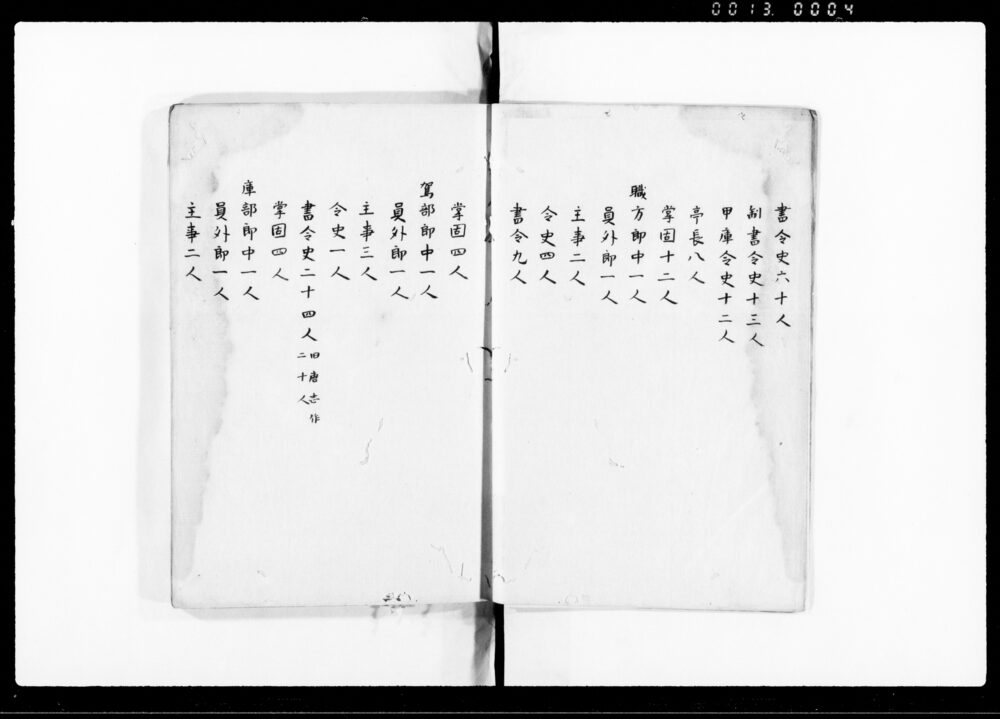 0013 0004
書令史六十人
制書令史十三人
甲庫令史十二人
亭長八人
掌固十二人
職方郎中一人
員外郎一人
主事二人
令史四人
書令九人
掌固四人
駕部郎中一人
員外郎一人
主事三人
令史一人
書令史二十四人旧唐志作
二十人
掌固四人
庫部郎中一人
員外郎一人
主事二人